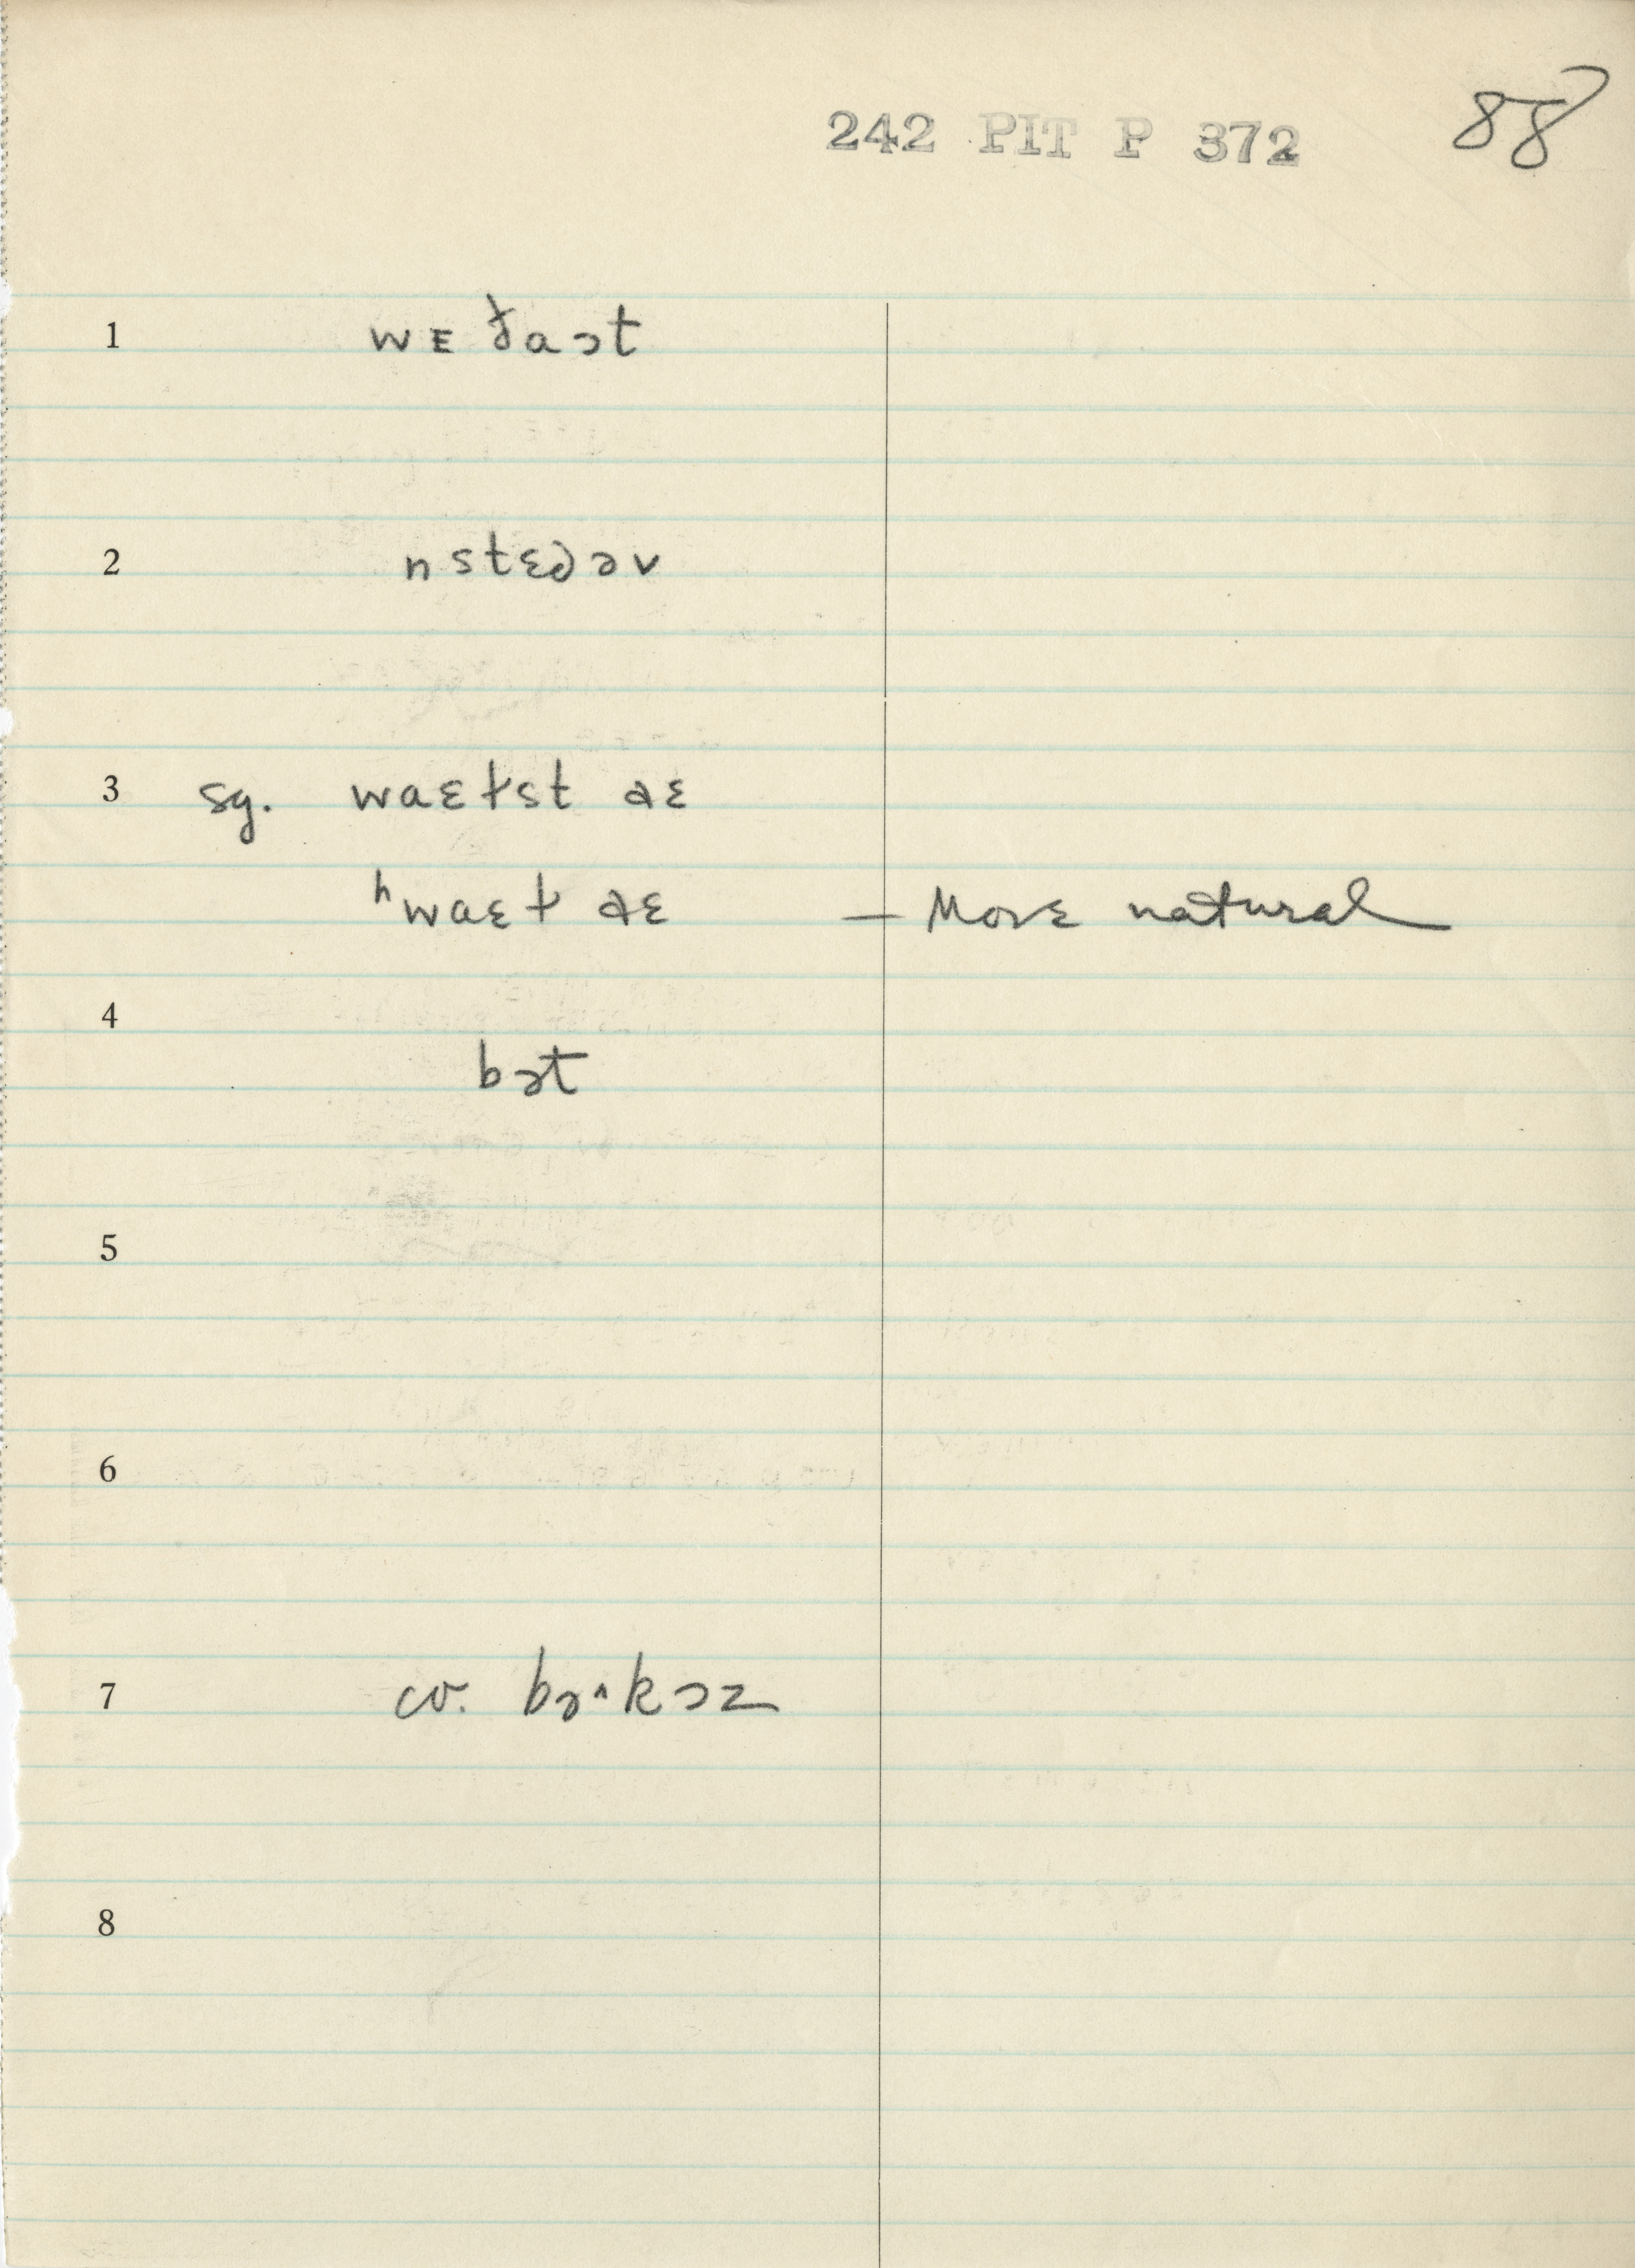 88
242 PIT P 372
1 wᴇ ðaɔt
2 nstɛdəv
3 sg. waɛɫst ðɛ
ʰwaɛɫ ðɛ — More natural
4
bət
5
6
7 cv. bə^kəz
8